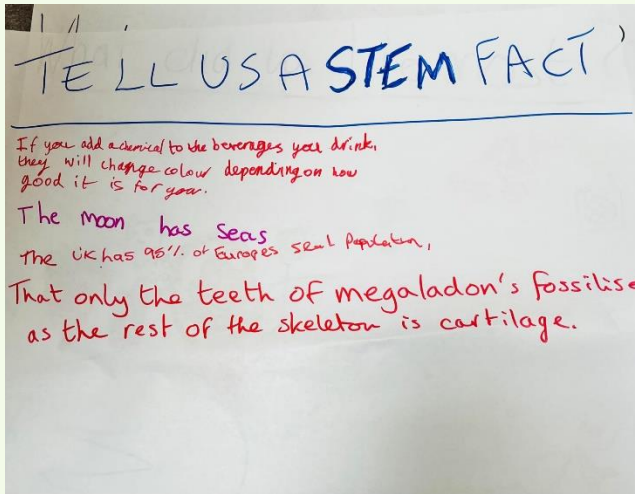 TELL US A STEM FACT
If you add a chemical to the beverages you drink,
they will change colour depending on how
good it is for you.
The moon has Seas
The UK has 95% of Europes seal Population,
That only the teeth of megaladon's fossilise
as the rest of the skeleton is cartilage.